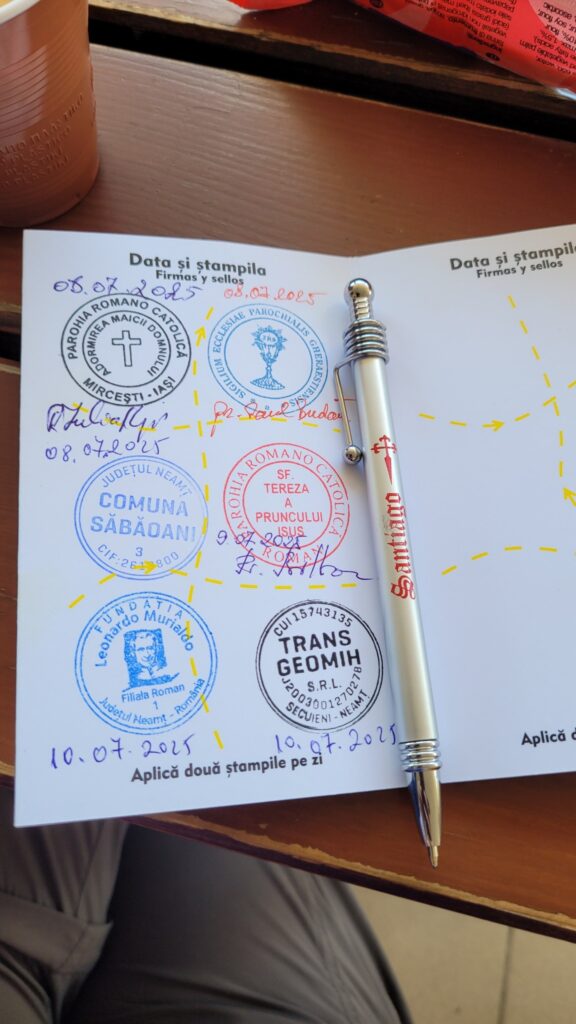 Data și ștampila
Firmas y sellos
08.07.2025
08.07.2025
PAROHIA ROMANO CATOLICĂ
ADORMIREA MAICII DOMNULUI
MIRCEȘTI - IAȘI
SIGILIUM ECCLESIAE PAROCHIALIS GHERAESTENSIS
08.07.2025
JUDEȚUL NEAMȚ
COMUNA
SĂBĂOANI
3
PAROHIA ROMANO CATOLICĂ
SF.
TEREZA
A
PRUNCULUI
ISUS
ROMAN
9.07.2025
FUNDATIA
Leonardo Murialdo
Filiala Roman
1
Județul Neamț - România
CUI 15743135
TRANS
GEOMIH
S.R.L.
SECUIENI - NEAMȚ
10.07.2025
10.07.2025
Aplică două ștampile pe zi
Santiago
Data și ștampila
Firmas y sellos
Aplică d